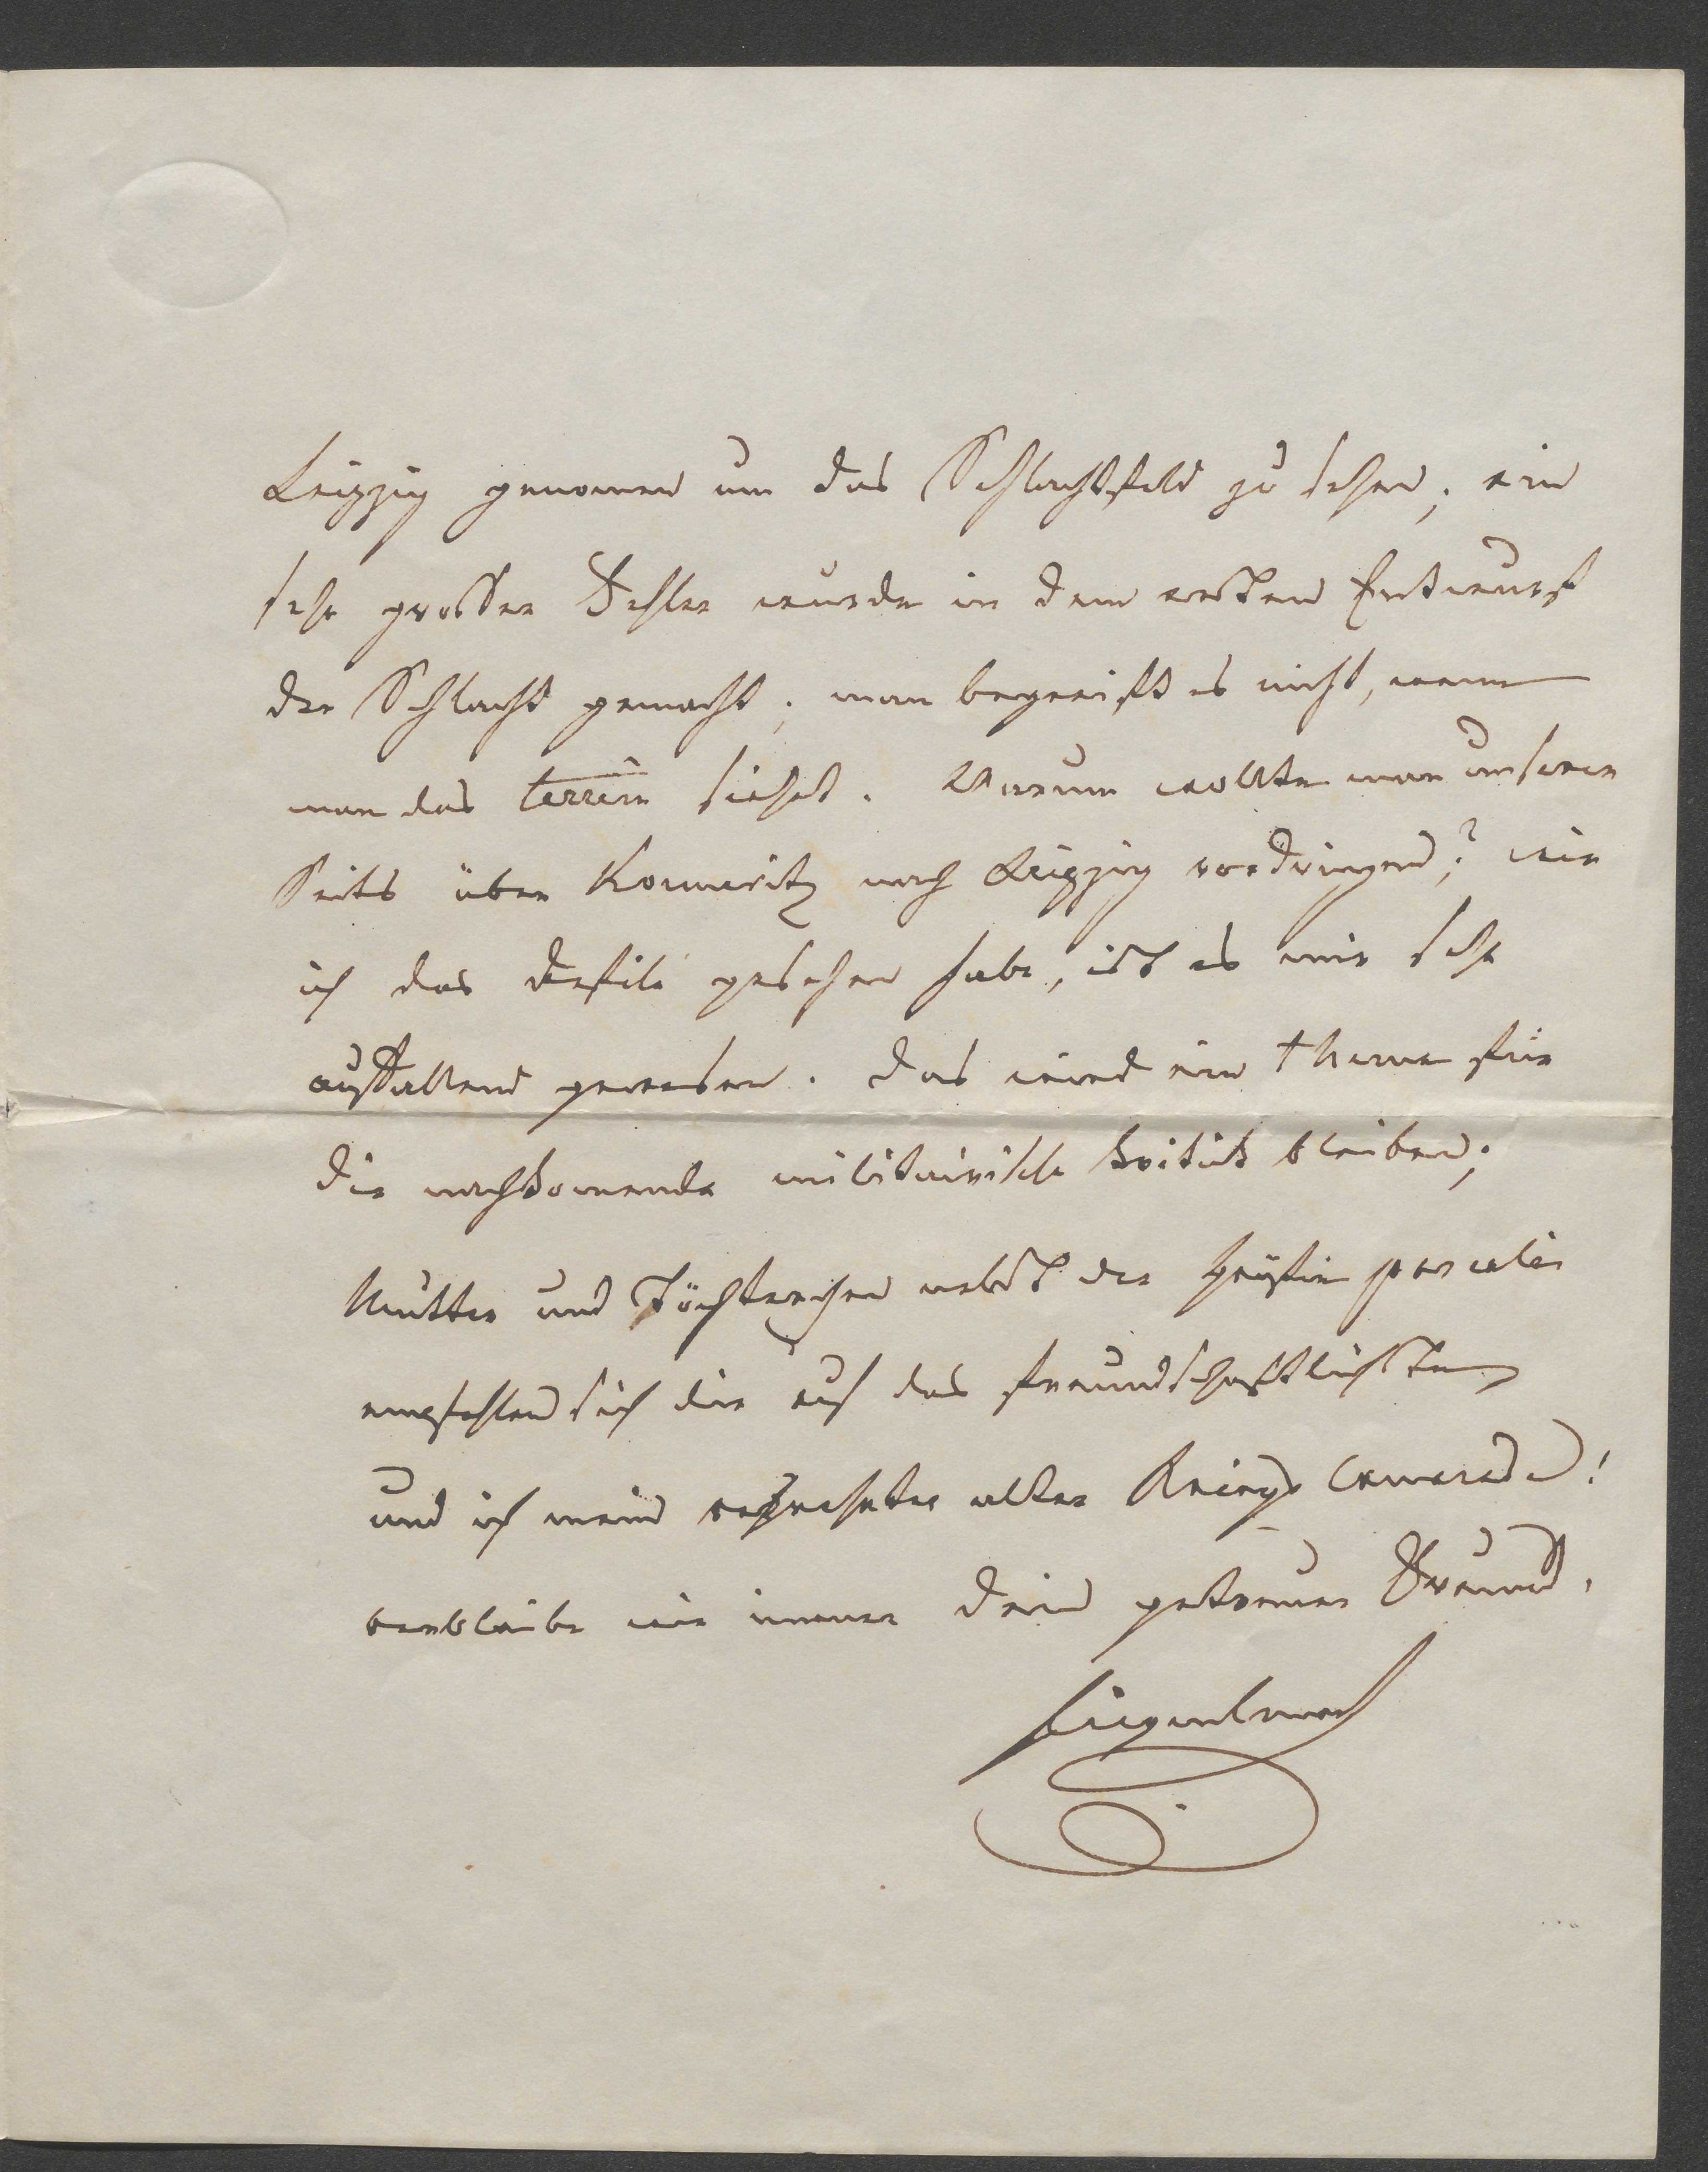 Leipzig genomen um das Schlachtfeld zu sehen; ein
sehr grosser Fehler wurde in dem ersten Entwurf
der Schlacht gemacht; man begreift es nicht, wenn
man das terrein siehet. Warum wollte man unserer
Seits über Konnewitz nach Leipzig vordringen? wie
ich das Defilé gesehen habe, ist es mir sehr
auffallend gewesen. Das wird ein thema für
die nachkomende militairische Kritick bleiben;
Mutter und Töchterchen nebst der Gräfin
empfehlen sich dir auf das freundschaftlichste
und ich mein verehrter alter Kriegs Camerad!
verbleibe wie immer Dein getreuer Freund.